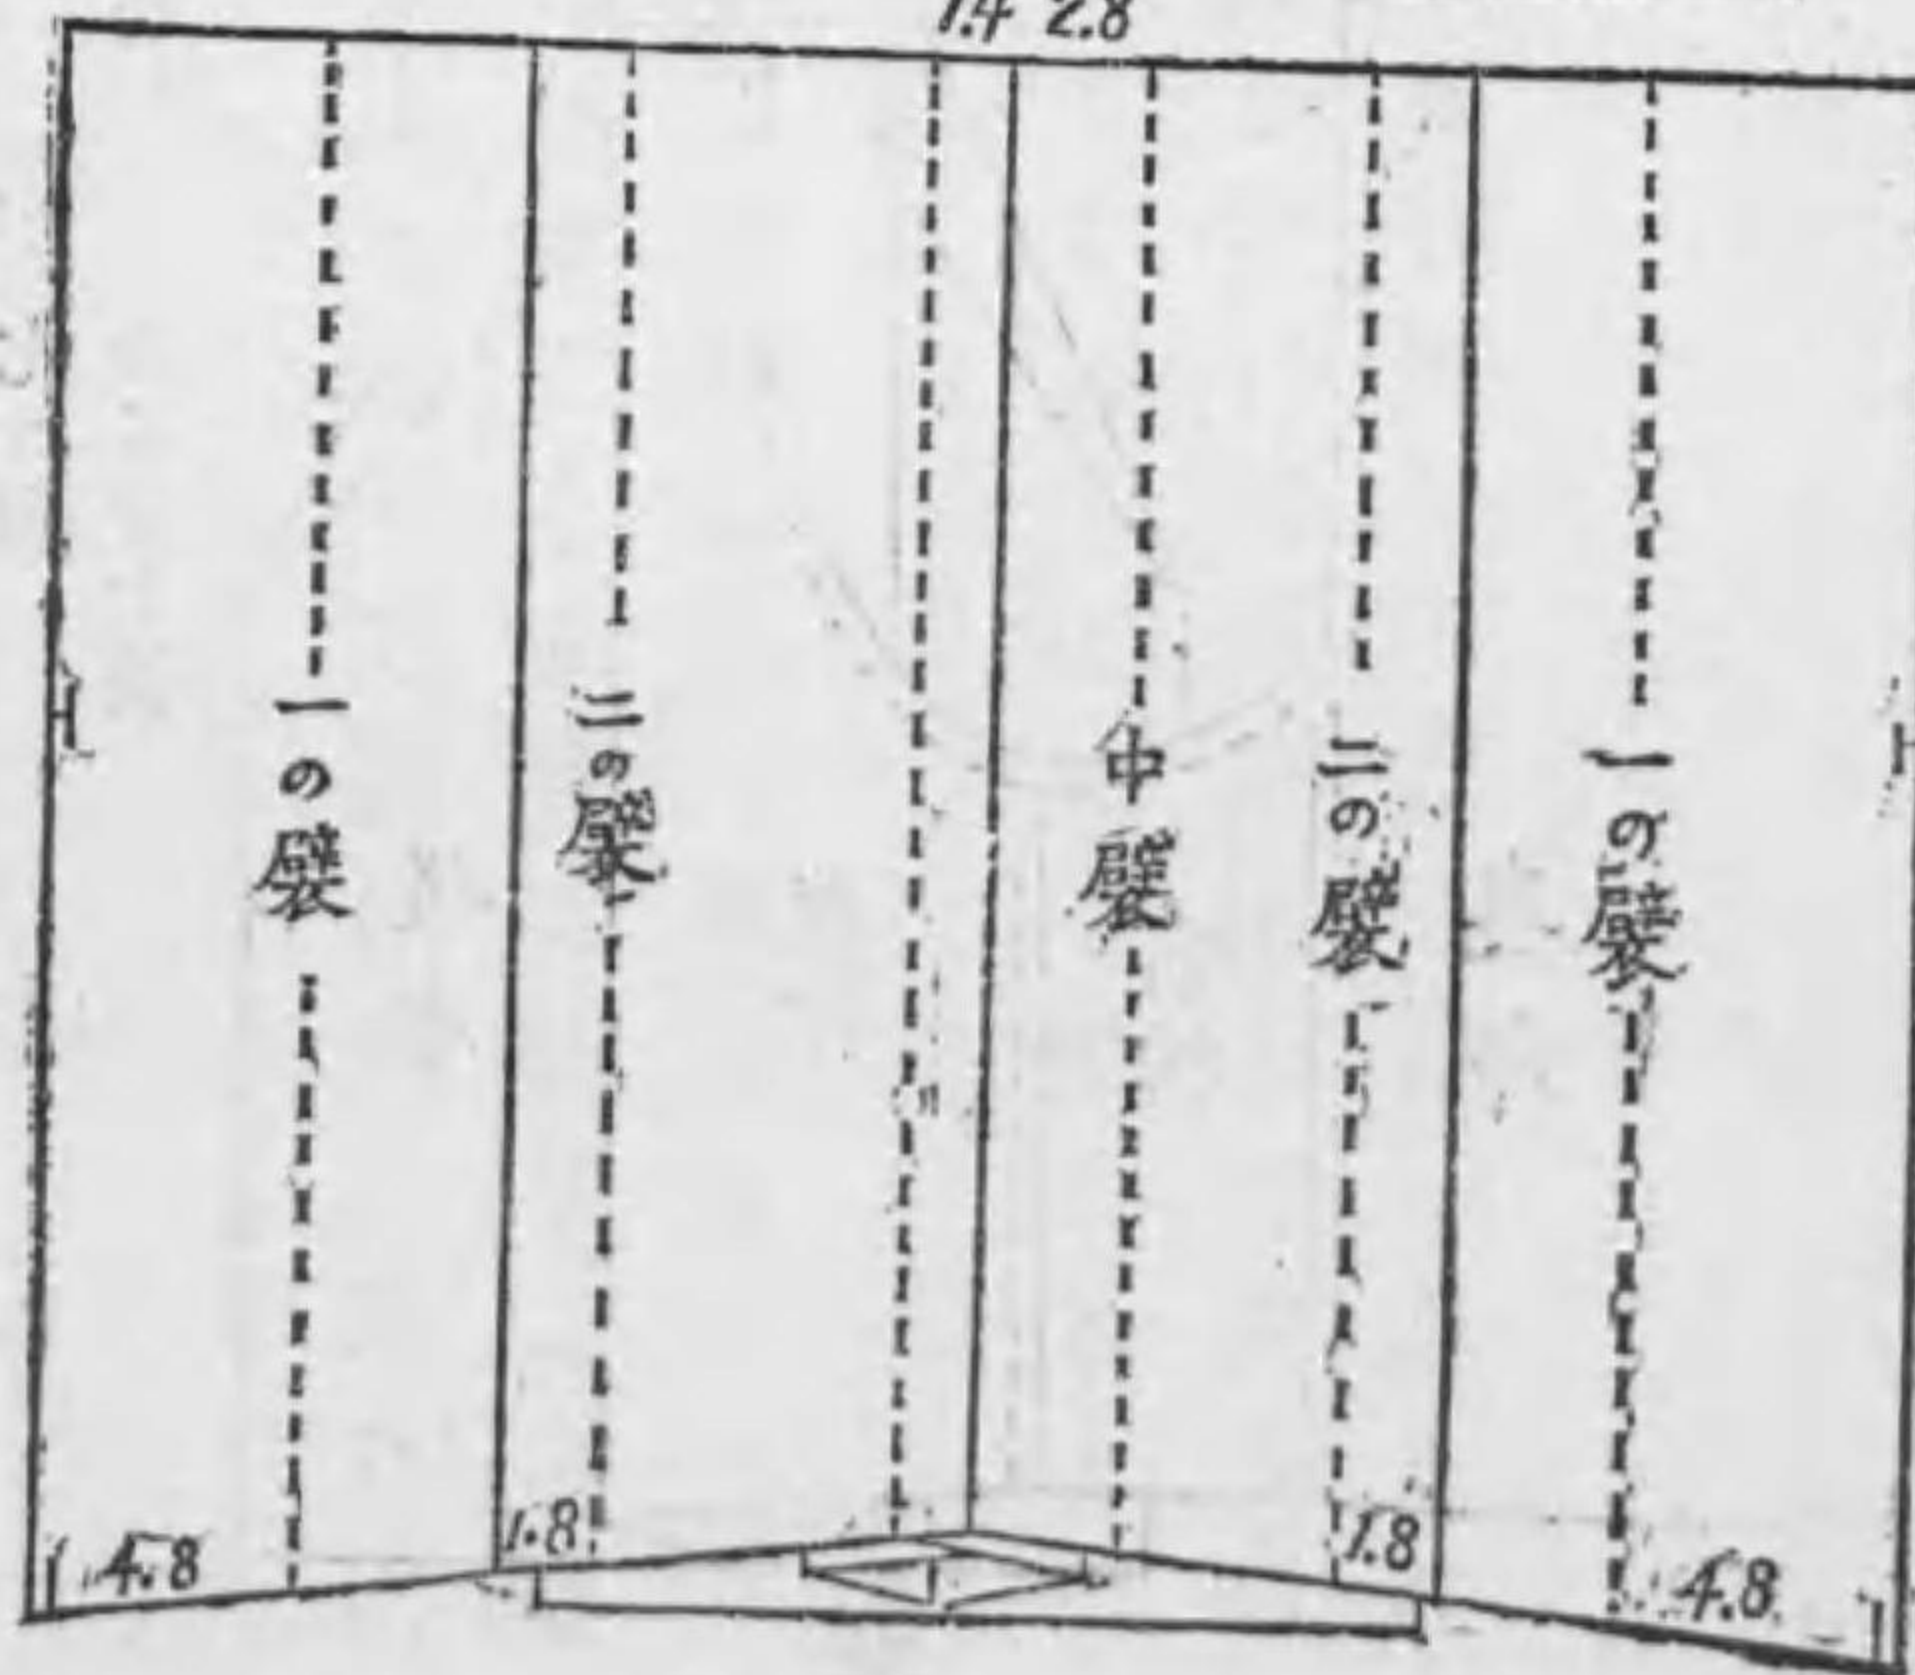 1.4 2.8
一の襞
二の襞
中襞
二の襞
一の襞
4.8
1.8
1.8
4.8